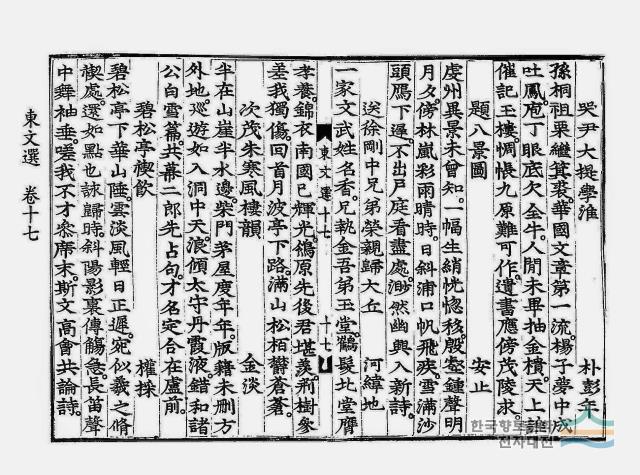 哭尹大提學淮 朴彭年
孫桐祖栗繼箕裘。華國文章第一流。楊子夢中成
吐鳳。庖丁眼底欠全牛。人閒未畢抽金樻。天上誰
催記玉樓。惆悵九原難可作。遺書應傍茂陵求。
題八景圖 安止
虔州異景未曾知。一幅生綃恍惚移。殷壑鍾聲明
月夕。傍林嵐彩雨晴時。日斜浦口帆飛疾。雪滿沙
頭鴈下遲。不出戶庭看盡處。渺然幽興入新詩。
送徐剛中兄弟榮親歸大丘 河緯地
一家文武姓名香。兄執金吾弟玉堂。鶴髮北堂膺
孝養。錦衣南國已輝光。鴒原先後君堪羨。荊樹參
差我獨傷。回首月波亭下路。滿山松栢欝蒼蒼。
次茂朱寒風樓韻 金淡
半在山崖半水邊。柴門茅屋度年年。版籍未刪方
外地。巡遊如入洞中天。浪傾太守丹霞液。錯和諸
公白雪篇。共喜二郎先占句。才名定合在盧前。
碧松亭禊飮 權採
碧松亭下華山陲。雲淡風輕日正遲。宛似羲之脩
禊處。還如點也詠歸時。斜陽影裏傳觴急。長笛聲
中舞袖垂。嗟我不才叅席末。斯文高會共論詩。
東文選十七
十七
東文選 卷十七
한국향토문화
전자대전